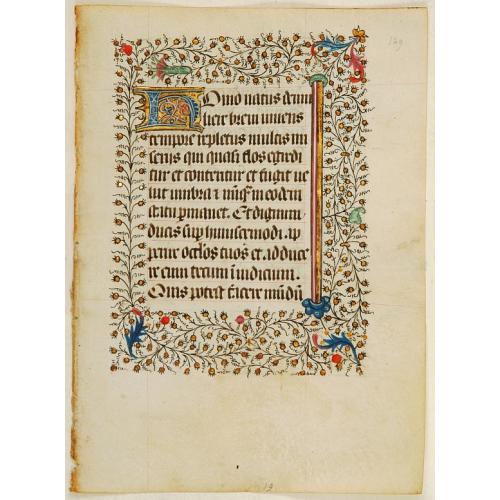 Homo natus de mu
liere breui uiuens
tempore repletus multis mi
seriis qui quasi flos egredi
tur et conteritur et fugit ue
lut umbra et nūqͣ in eodem
statu permanet. Et dignum
ducis sup huiuscemodi. ap
perire oc̄los tuos et. adduce
re eum tecum ī iudicium.
Quis potest facere mūdū
149
19